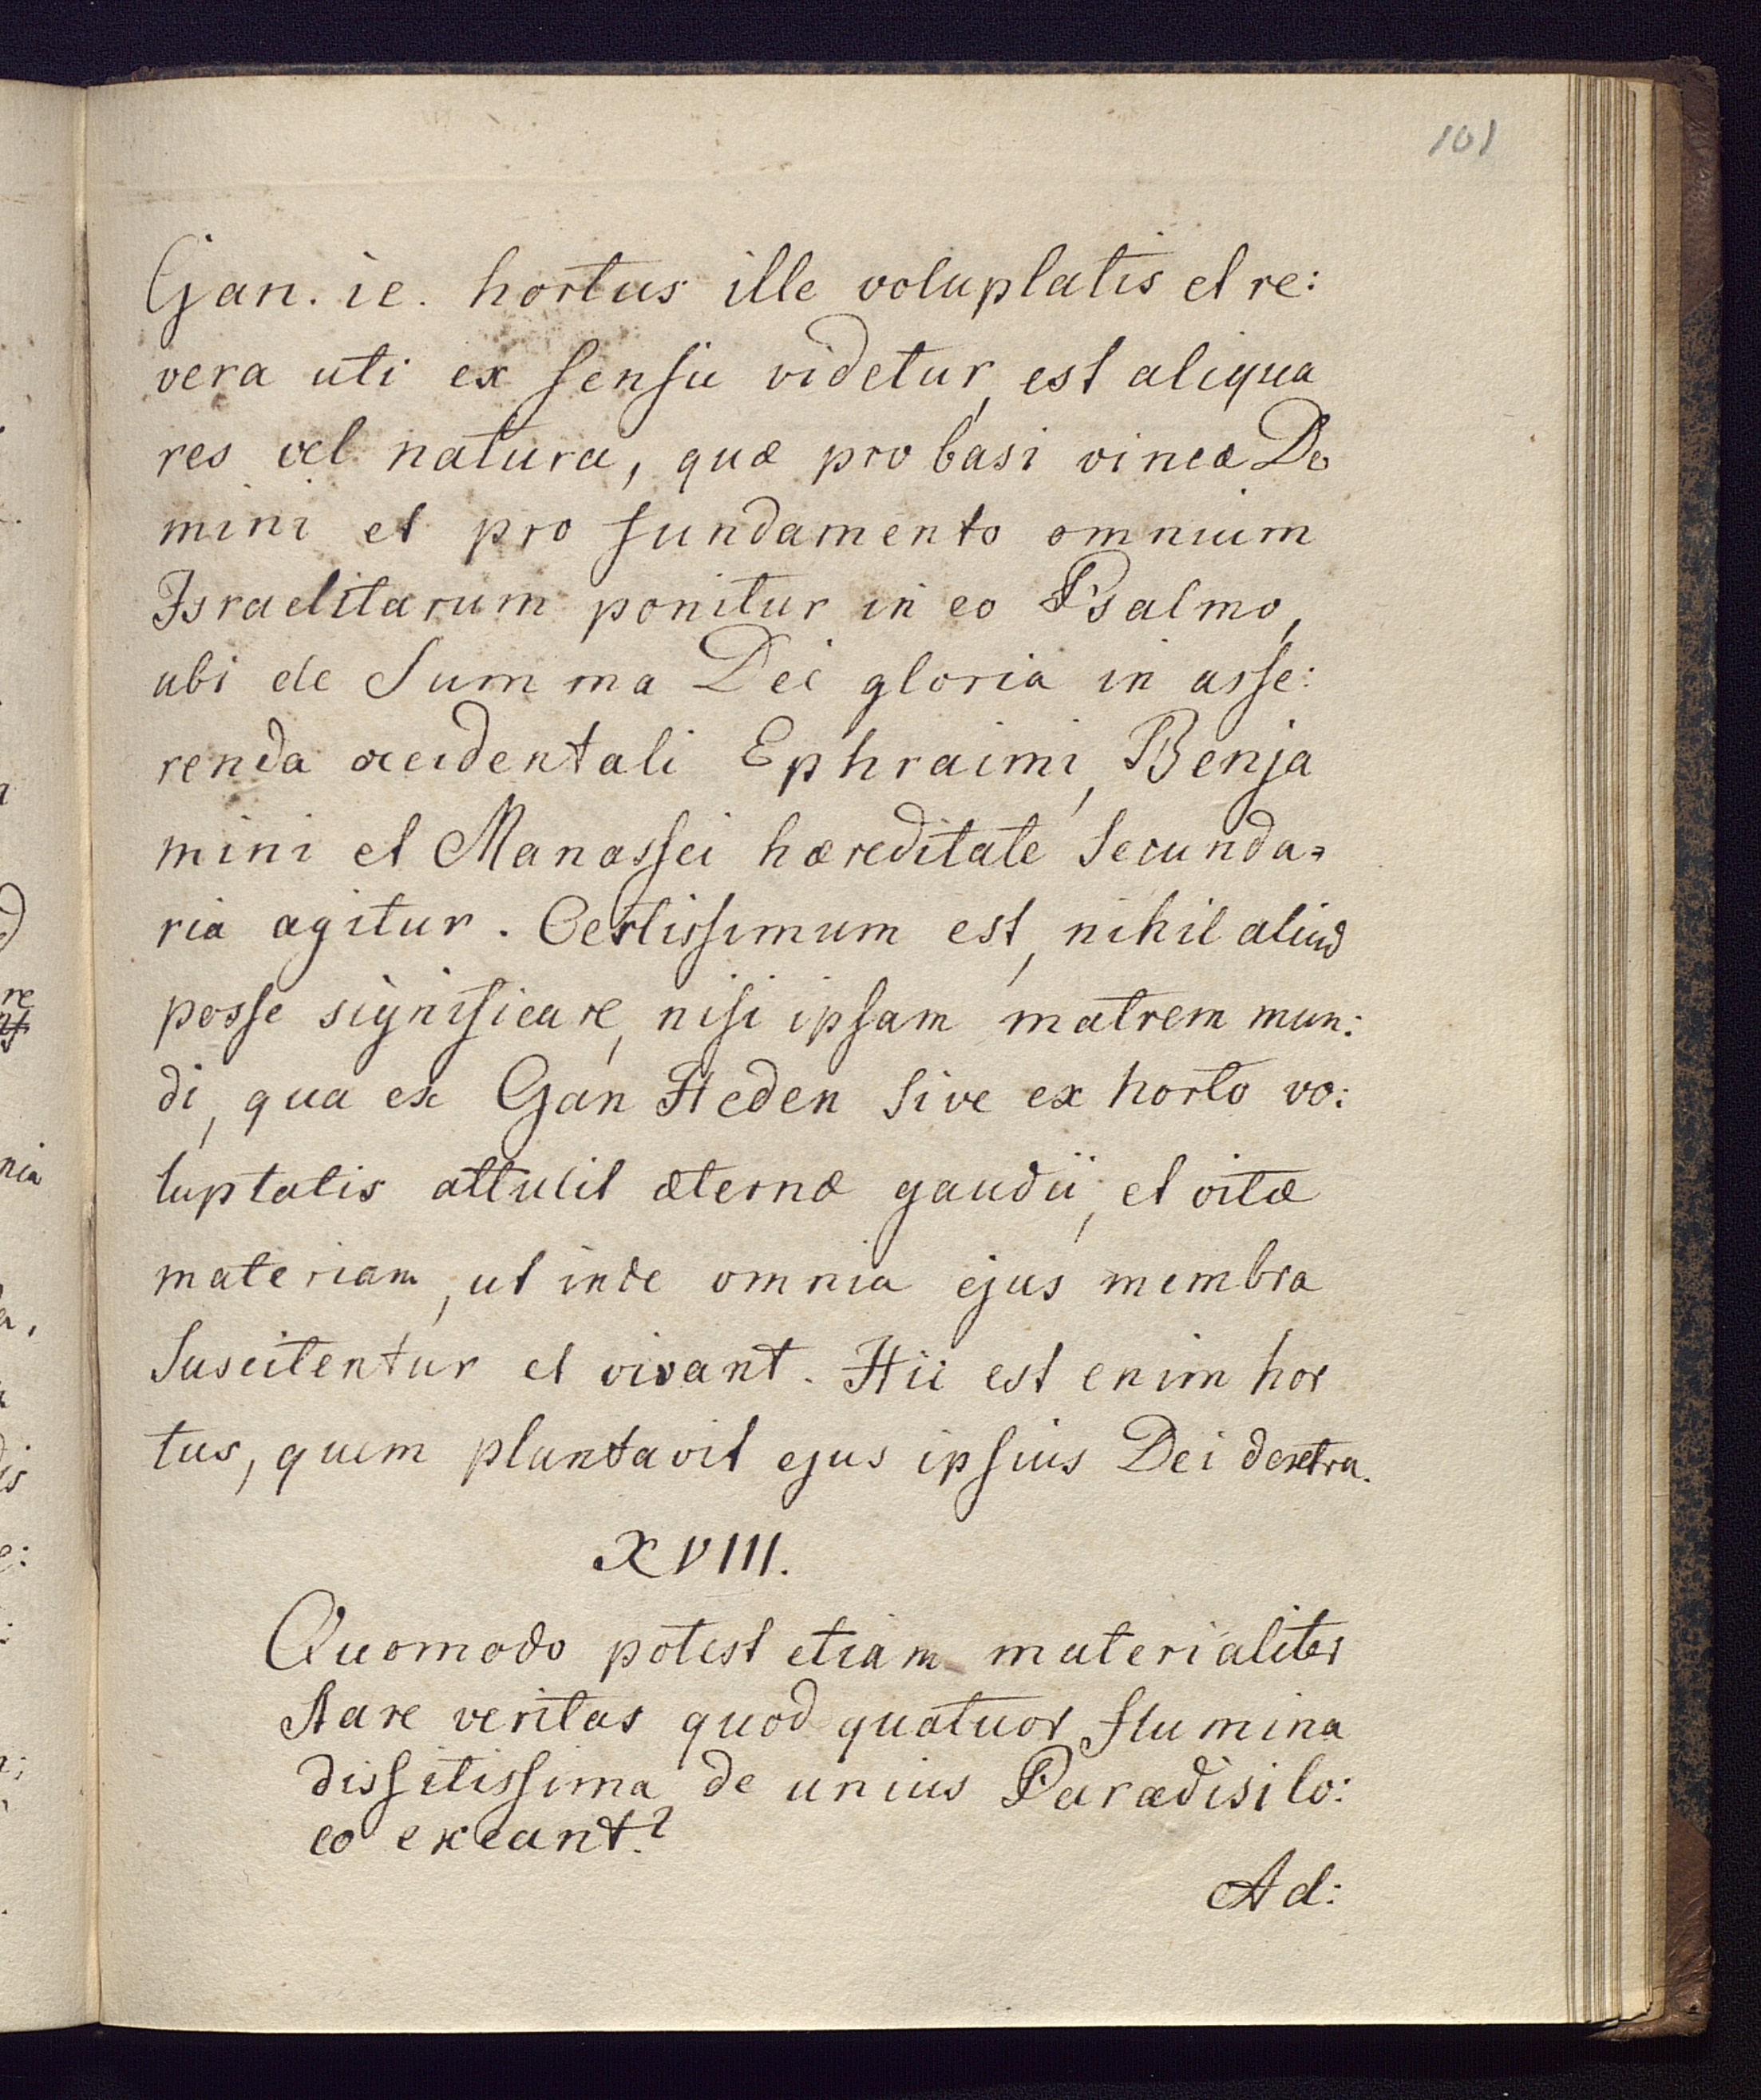 101
Gan. ie. hortus ille voluptatis et re:
vera uti ex sensu videtur, est aliqua
res vel natura, quæ pro basi vineæ Do
mini et pro fundamento omnium
Israelitarum ponitur in eo Psalmo,
ubi de Summa Dei gloria in asse:
renda occidentali Ephraimi, Benja
mini et Manassei hæreditate Secunda=
ria agitur. Certissimum est, nihil aliud
posse significare, nisi ipsam matrem mun:
di, qua ex Gan Heden Sive ex horto vo:
luptatis attulit æternæ gaudii, et vitæ
materiam, ut inde omnia ejus membra
Suscitentur et vivant. Hic est enim hor
tus, quem plantavit ejus ipsius Dei dextra.
XVIII.
Quomodo potest etiam materialiter
Stare veritas quod quatuor flumina
dissitissima de unius Paradisi lo:
co exeant?
Ad: